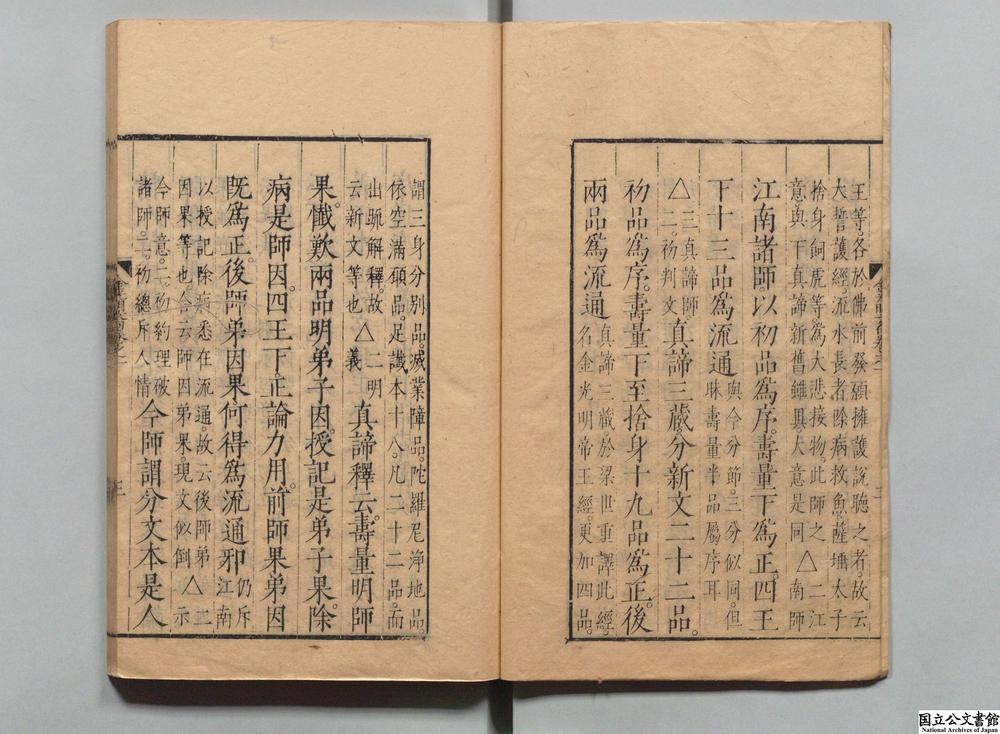 王等各於佛前發願擁護說聽之者故云
大誓護經流水長者除病救魚薩埵太子
捨身飼虎等爲大悲接物此師之 △二江
意與下真諦新舊雖異大意是同 南師
江南諸師以初品爲序壽量下爲正四王
下十三品爲流通 與今分節三分似同但
昧壽量半品屬序耳
△ 三真諦師
二初判文 真諦三藏分新文二十二品
初品爲序壽量下至捨身十九品爲正後
兩品爲流通 真諦三藏於梁世重譯此經
名金光明帝王經更加四品
謂三身分別品滅業障品陀羅尼淨地品
依空滿願品足讖本十八凡二十二品而
出疏解釋故 △二明
云新文等也 義 真諦釋云壽量明師
果懺歎兩品明弟子因授記是弟子果除
病是師因四王下正論力用前師果弟因
既爲正後師弟因果何得爲流通邪 仍斥
江南
以授記除病悉在流通故云後師弟 △二
因果等也 今云師因弟果現文似倒 示
今師意二初約理破
諸師二初總斥人情 今師謂分文本是人
国立公文書館
National Archives of Japan